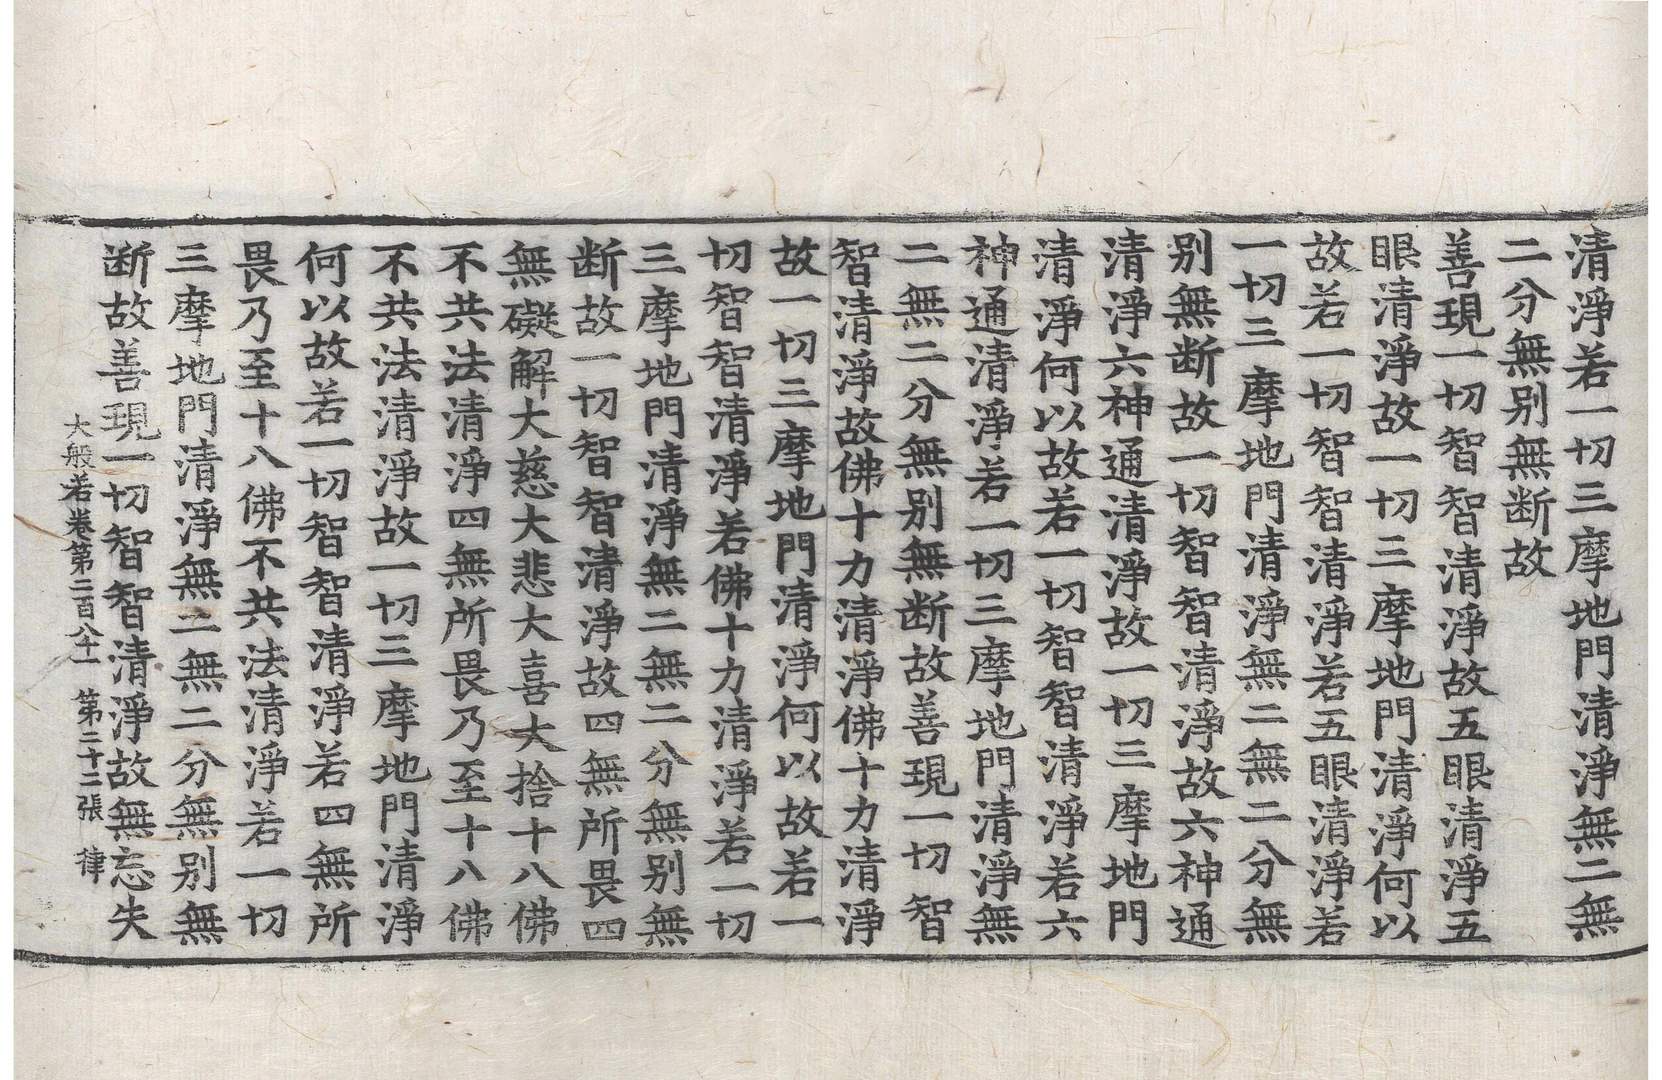 清淨若一切三摩地門清淨無二無
二分無别無断故
善現一切智智清淨故五眼清淨五
眼清淨故一切三摩地門清淨何以
故若一切智智清淨若五眼清淨若
一切三摩地門清淨無二無二分無
别無断故一切智智清淨故六神通
清淨六神通清淨故一切三摩地門
清淨何以故若一切智智清淨若六
神通清淨若一切三摩地門清淨無
二無二分無别無断故善現一切智
智清淨故佛十力清淨佛十力清淨
故一切三摩地門清淨何以故若一
切智智清淨若佛十力清淨若一切
三摩地門清淨無二無二分無别無
断故一切智智清淨故四無所畏四
無礙解大慈大悲大喜大捨十八佛
不共法清淨四無所畏乃至十八佛
不共法清淨故一切三摩地門清淨
何以故若一切智智清淨若四無所
畏乃至十八佛不共法清淨若一切
三摩地門清淨無二無二分無别無
断故善現一切智智清淨故無忘失
大般若卷第二百八十一 第二十二張 律